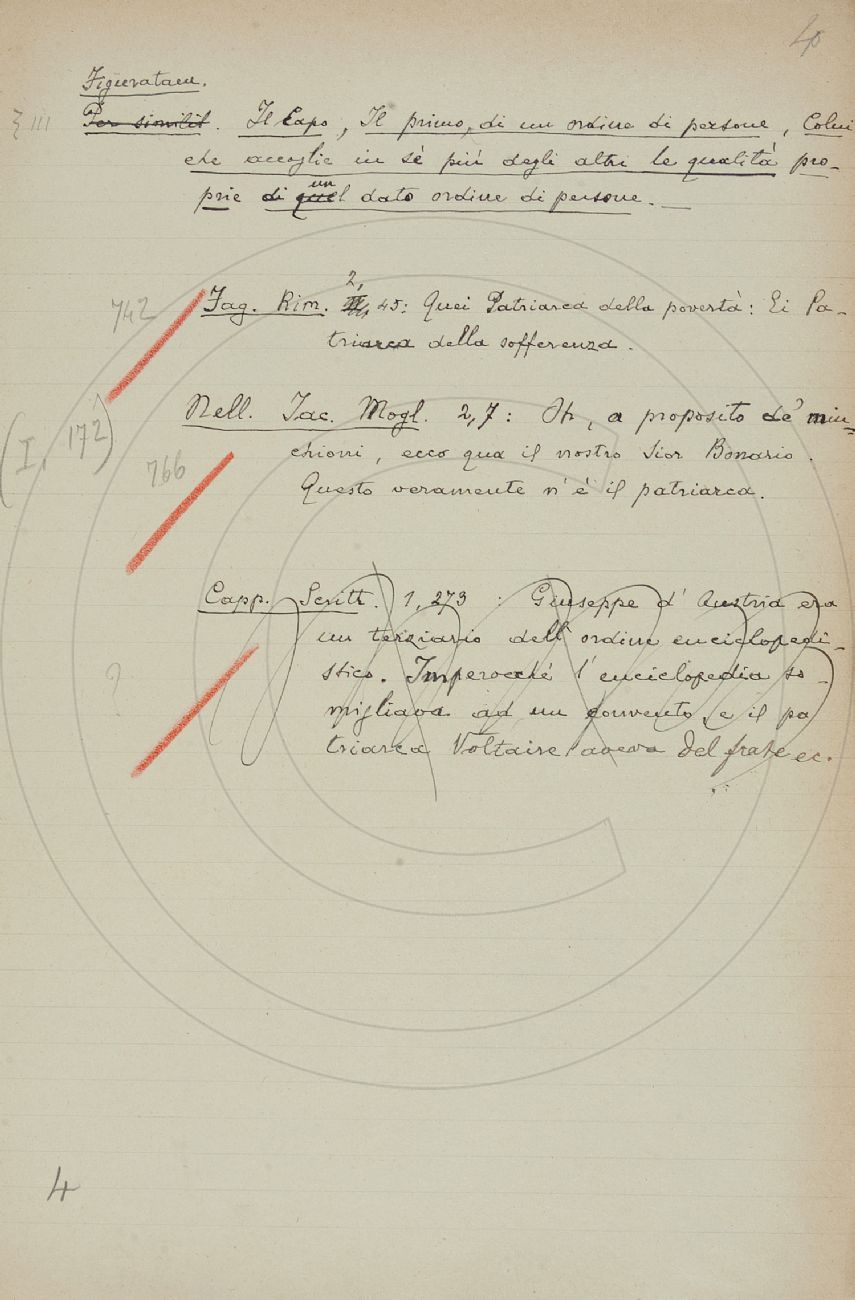 40
Figuratam.
§ III Per similit. Il Capo, Il primo, di un ordine di persone, Colui
che accoglie in sè più degli altri le qualità pro-
un
prie di quel dato ordine di persone. —
2,
742 Fag. Rim. III, 45: Quei Patriarca della povertà: Ei Pa-
triarca della sofferenza.
Nell. Iac. Mogl. 2, 7: Oh, a proposito de' min-
(I, 172) chioni, ecco qua il nostro Sior Bonario.
766 Questo veramente n' è il patriarca.
Capp. Scritt. 1, 273: Giuseppe d' Austria era
un terziario dell' ordine enciclopedi-
? stico. Imperocché l' enciclopedia so-
migliava ad un convento, e il pa
triarca Voltaire aveva del frate ec.
4